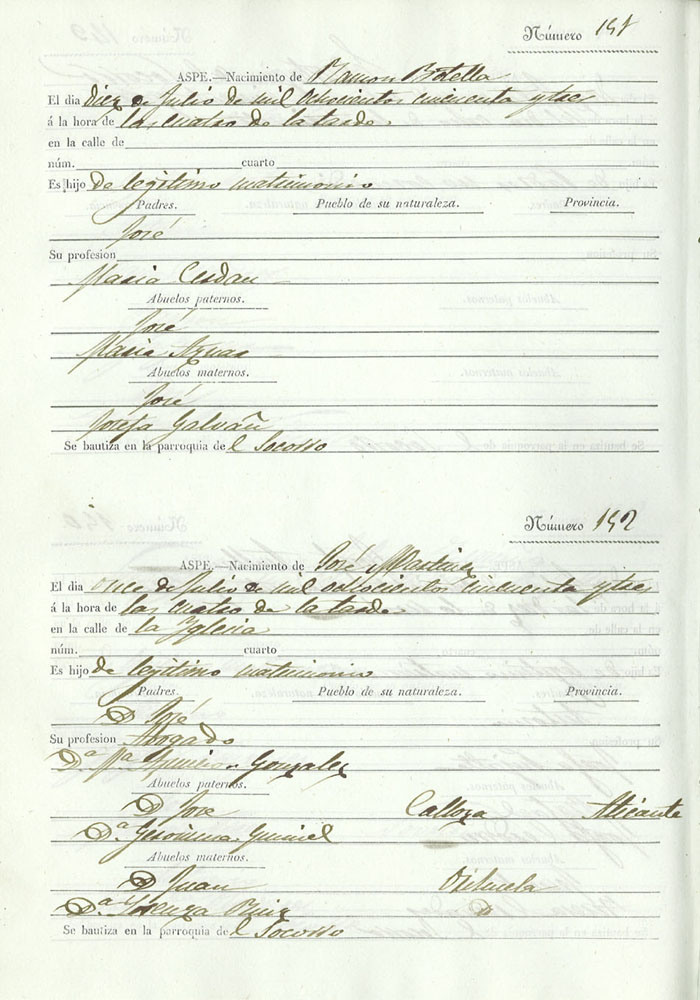 Número 151
ASPE.—Nacimiento de Ramon Botella
El dia diez de Julio de mil ochocientos cincuenta y tres
á la hora de las cuatro de la tarde
en la calle de
núm. cuarto
Es hijo de legitimo matrimonio
Padres. Pueblo de su naturaleza. Provincia.
José
Su profesion
Maria Cerdan
Abuelos paternos.
José
Maria Aznar
Abuelos maternos.
José
Josefa Galvañ
Se bautiza en la parroquia de l Socorro
Número 152
ASPE.—Nacimiento de José Martinez
El dia once de Julio de mil ochocientos cincuenta y tres
á la hora de las cuatro de la tarde
en la calle de la Yglesia
núm. cuarto
Es hijo de legitimo matrimonio
Padres. Pueblo de su naturaleza. Provincia.
D José
Su profesion Abogado
Dª Mª Gonzalez
Abuelos paternos.
D Jose Callosa Alicante
Dª Geronima
Abuelos maternos.
D Juan Orihuela
Dª Ruiz D
Se bautiza en la parroquia de l Socorro